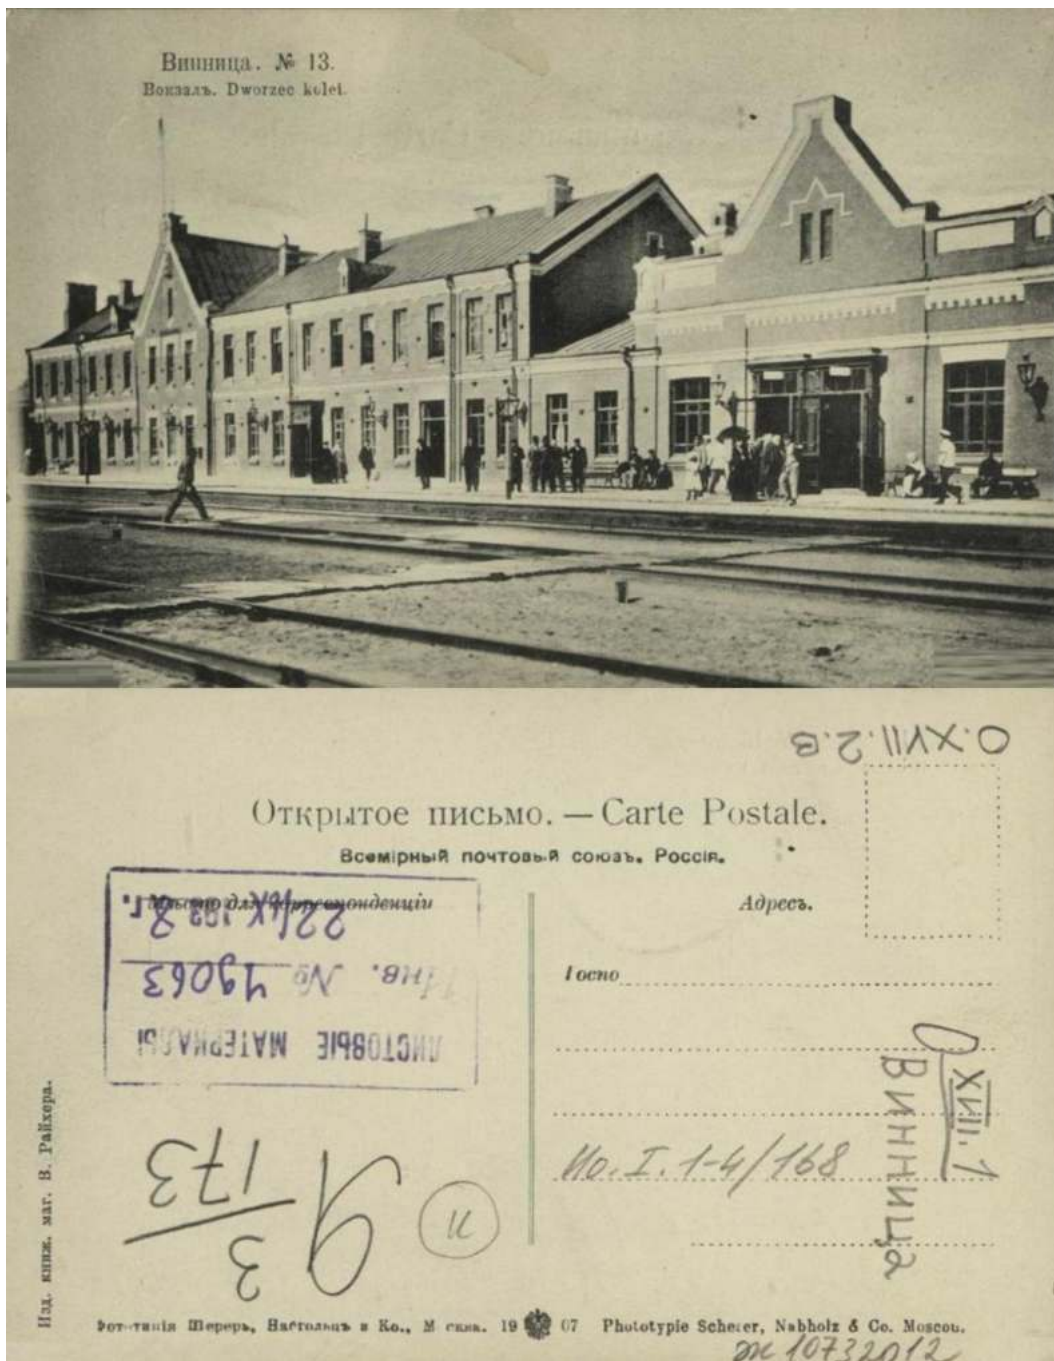 Винница. № 13.
Вокзалъ. Dworzec kolei.
О.XVII.2.В
Открытое письмо. — Carte Postale.
Всемірный почтовый союзъ. Россія.
Мѣсто для корреспонденціи
Адресъ.
22/IX 193 г.
Инв. № 49063
ЛИСТОВЫЕ МАТЕРИАЛЫ
Госпо
XVIII.1
Винница
Ио.I.1-4/168
173
3
Я
П
Изд. книж. маг. В. Райхера.
Фототипія Шереръ, Набгольцъ и Ко., Москва. 19 07 Phototypie Scherer, Nabholz & Co. Moscou.
ж 10732012